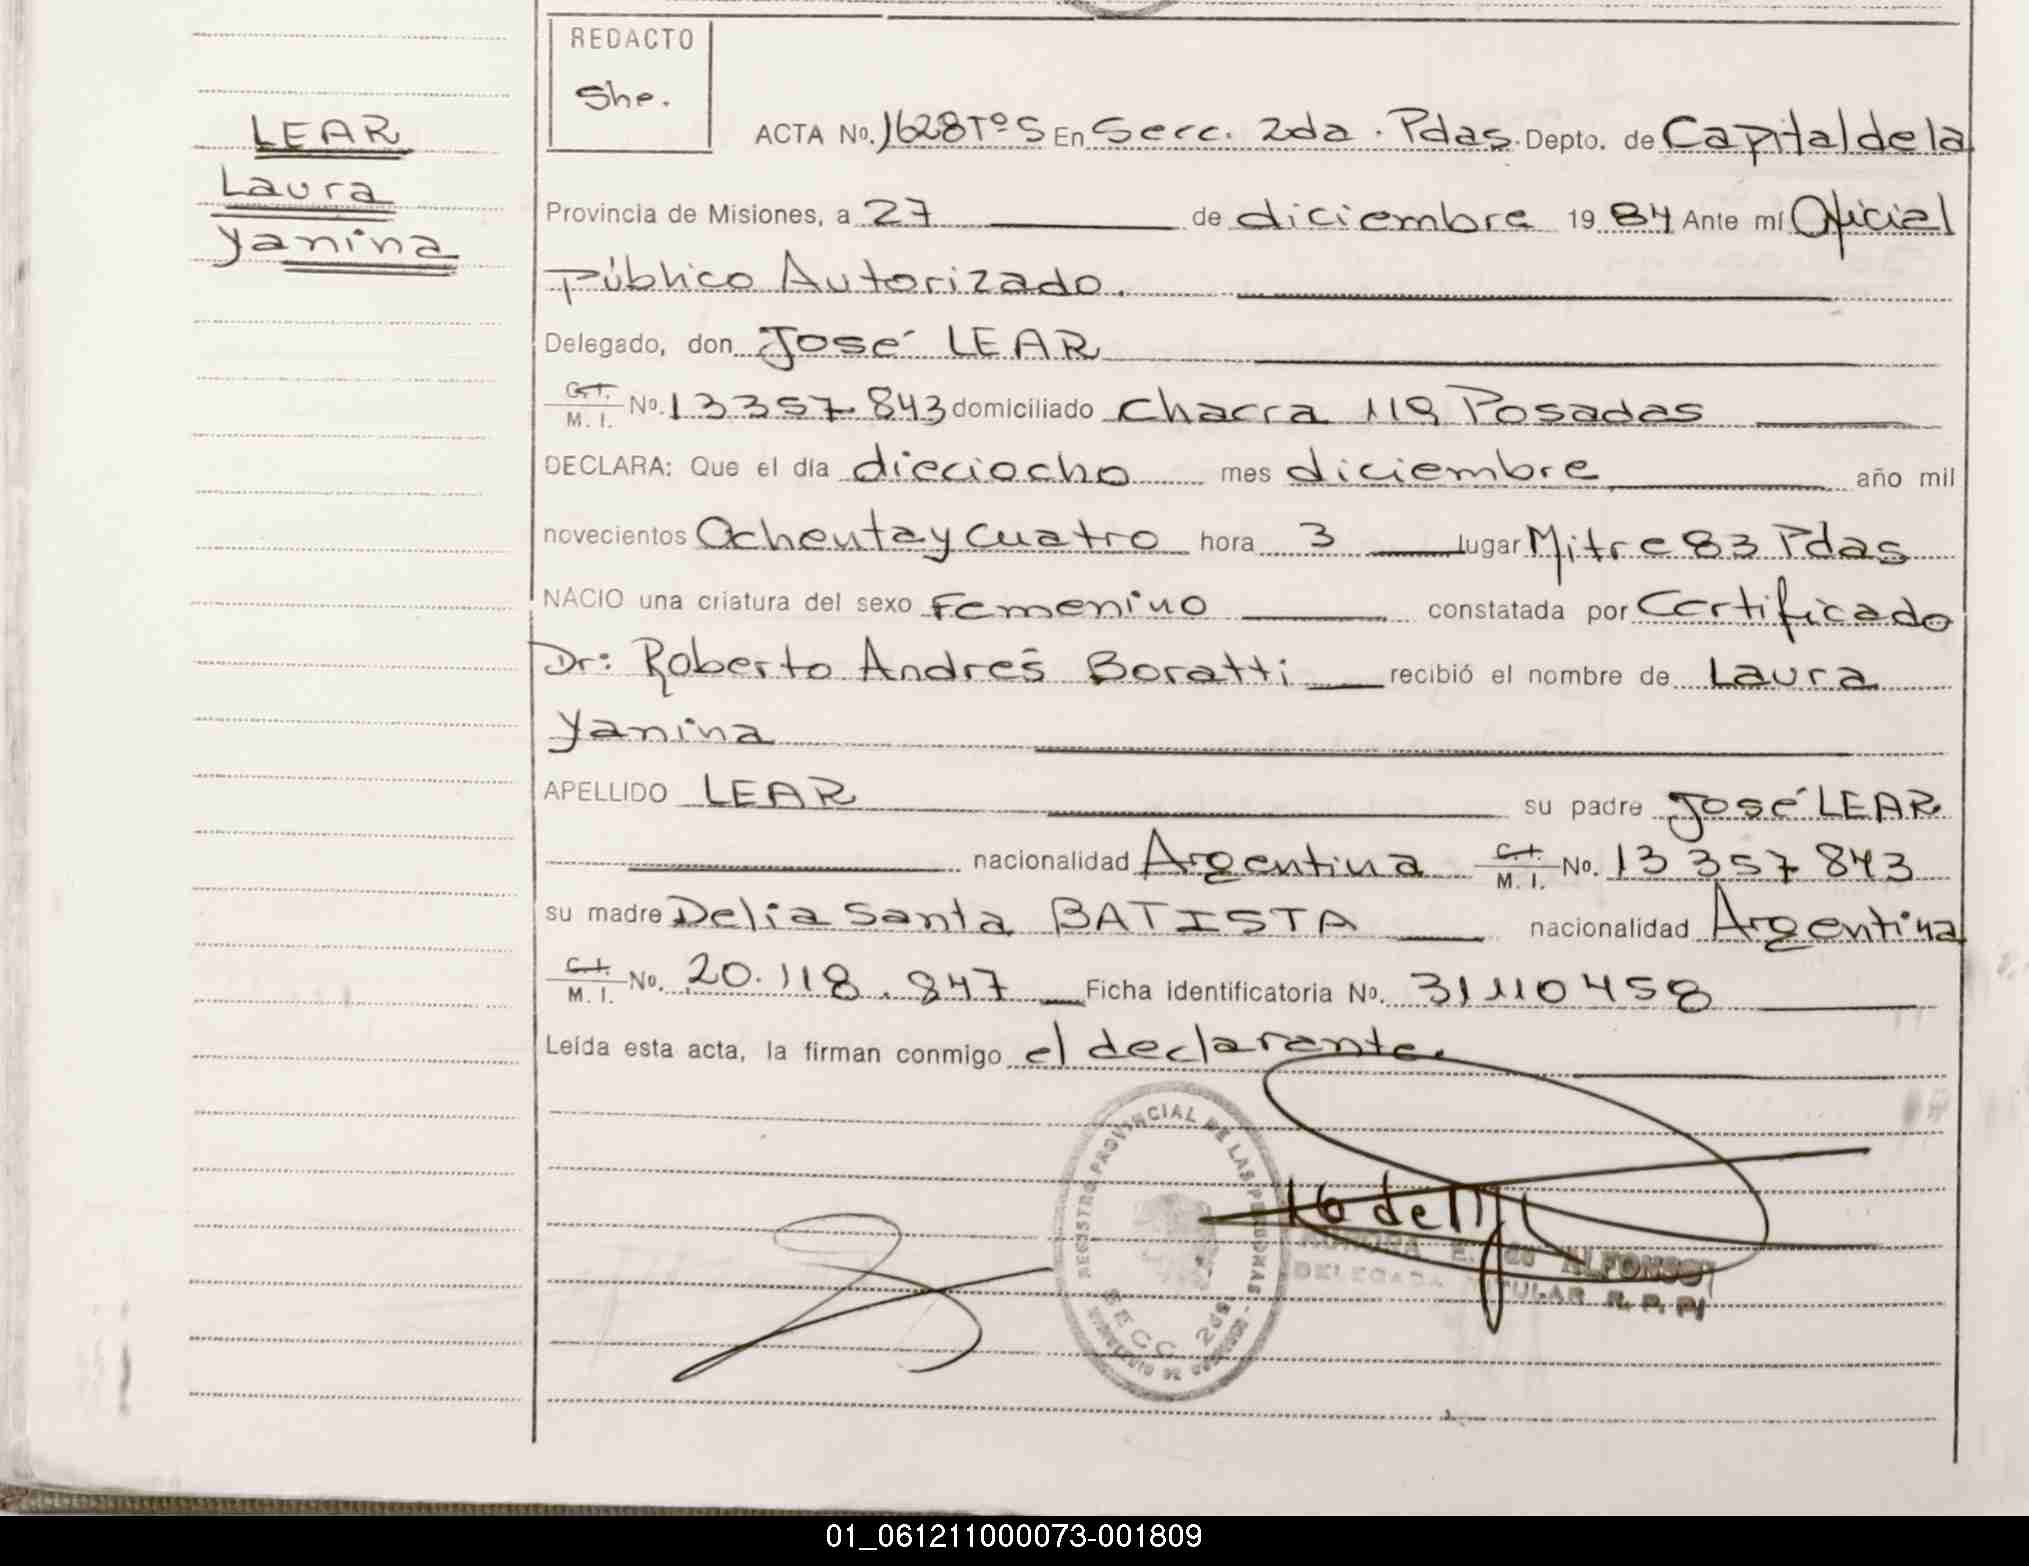 REDACTO
She.
LEAR
Laura
Yanina
ACTA No. 1628 Tº 5 En Secc. 2da. Pdas. Depto. de Capital de la
Provincia de Misiones, a 27 de diciembre 1984 Ante mí Oficial
Público Autorizado.
Delegado, don José LEAR
C.I. M. I. No. 13 357 843 domiciliado Chacra 119 Posadas
DECLARA: Que el día dieciocho mes diciembre año mil
novecientos Ochenta y Cuatro hora 3 lugar Mitre 83 Pdas
NACIO una criatura del sexo Femenino constatada por Certificado
Dr: Roberto Andrés Boratti recibió el nombre de Laura
Yanina
APELLIDO LEAR su padre José LEAR
nacionalidad Argentina C.I. M. I. No. 13 357 843
su madre Delia Santa BATISTA nacionalidad Argentina
C.I. M. I. No. 20.118.847 Ficha identificatoria No. 31110458
Leída esta acta, la firman conmigo el declarante.
REGISTRO PROVINCIAL DE LAS PERSONAS
SECC. 2da.
MINISTERIO DE GOBIERNO
ALFONSO
DELEGADA TITULAR R. P. P.
01_061211000073-001809